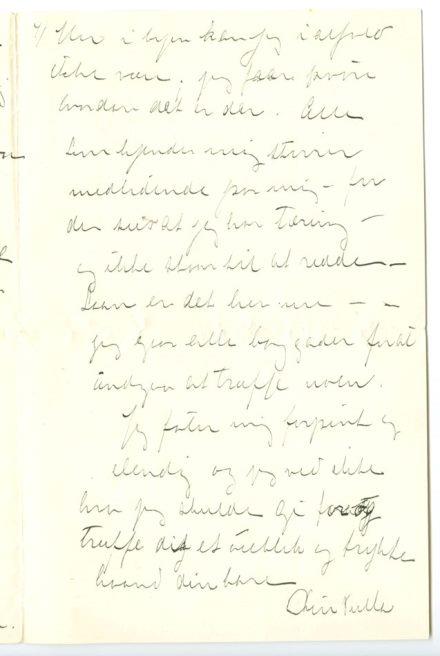 4/ Her i byen kan jeg i alfald
ikke være, jeg faar prøve
hvordan det er der. Alle
som kjender mig stirrer
medlidende paa mig – for
de sier at jeg har tæring –
og ikke staar til at redde –
Saan er det her nu – –
jeg gaar alle baggader forat
undgaa at træffe noen.
Jeg føler mig forpint og
elendig og jeg ved ikke
hva jeg skulde gi for
træffe dig et øieblik og trykke
haand din bare
Din Tulla